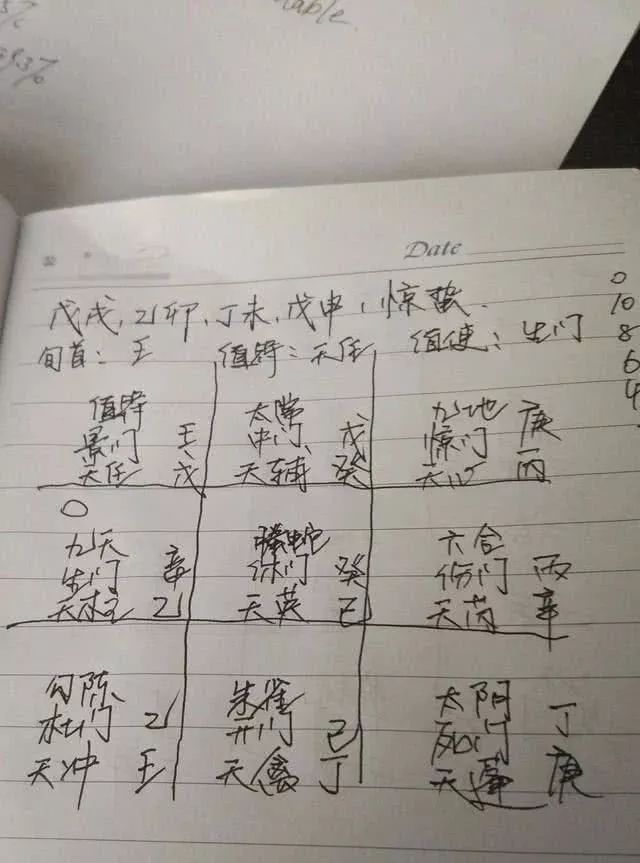 able
Date
戊戌,乙卯,丁未,戊申,惊蛰.
旬首:壬 值符:天任 值使:生门
0
10
8
6
4
值符
景门 壬
天任 戊
太常
中门、戊
天辅 癸
九地
惊门 庚
天心 丙
九天
生门 辛
天柱 乙
螣蛇
休门 癸
天英 己
六合
伤门 丙
天芮 辛
勾陈、
杜门 乙
天冲 壬
朱雀
开门 己
天禽 丁
太阴
死门 丁
天蓬 庚